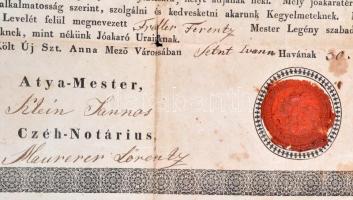 alkalmatosság szerint, szolgálni és kedveskedni akarunk Kegyelmeteknek.
Levelét felül megnevezett Treller Ferentz Mester Legény szabad
eknek, mint nékünk Jóakaró Uraiknak.
Költ Új Szt. Anna Mező Városában Szent Iwann Havának 30.
Atya-Mester,
Klein Jannos
Czéh-Notárius,
Maurerer Lörentz